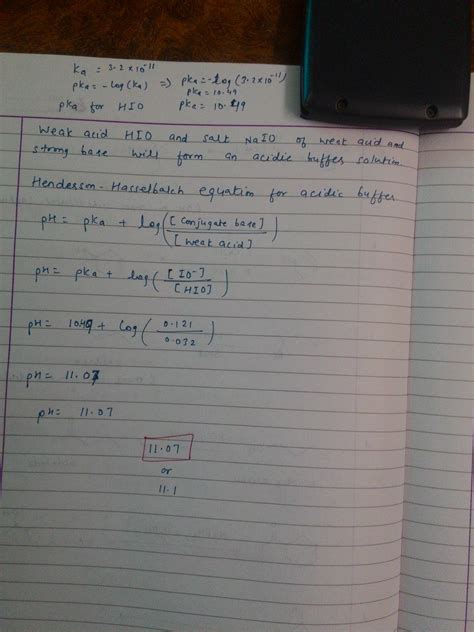 Ka = 3.2 x 10⁻¹¹
pka = -log(Ka) ⇒ pka = -log(3.2x10⁻¹¹)
pka = 10.49
pka for HIO pka = 10.49
Weak acid HIO and salt NaIO of weak acid and
strong base will form an acidic buffer solution
Henderson-Hasselbalch equation for acidic buffer
pH = pka + log([Conjugate base]/[Weak acid])
pH = pka + log([IO⁻]/[HIO])
pH = 10.49 + log(0.121/0.032)
pH = 11.07
pH = 11.07
11.07
or
11.1